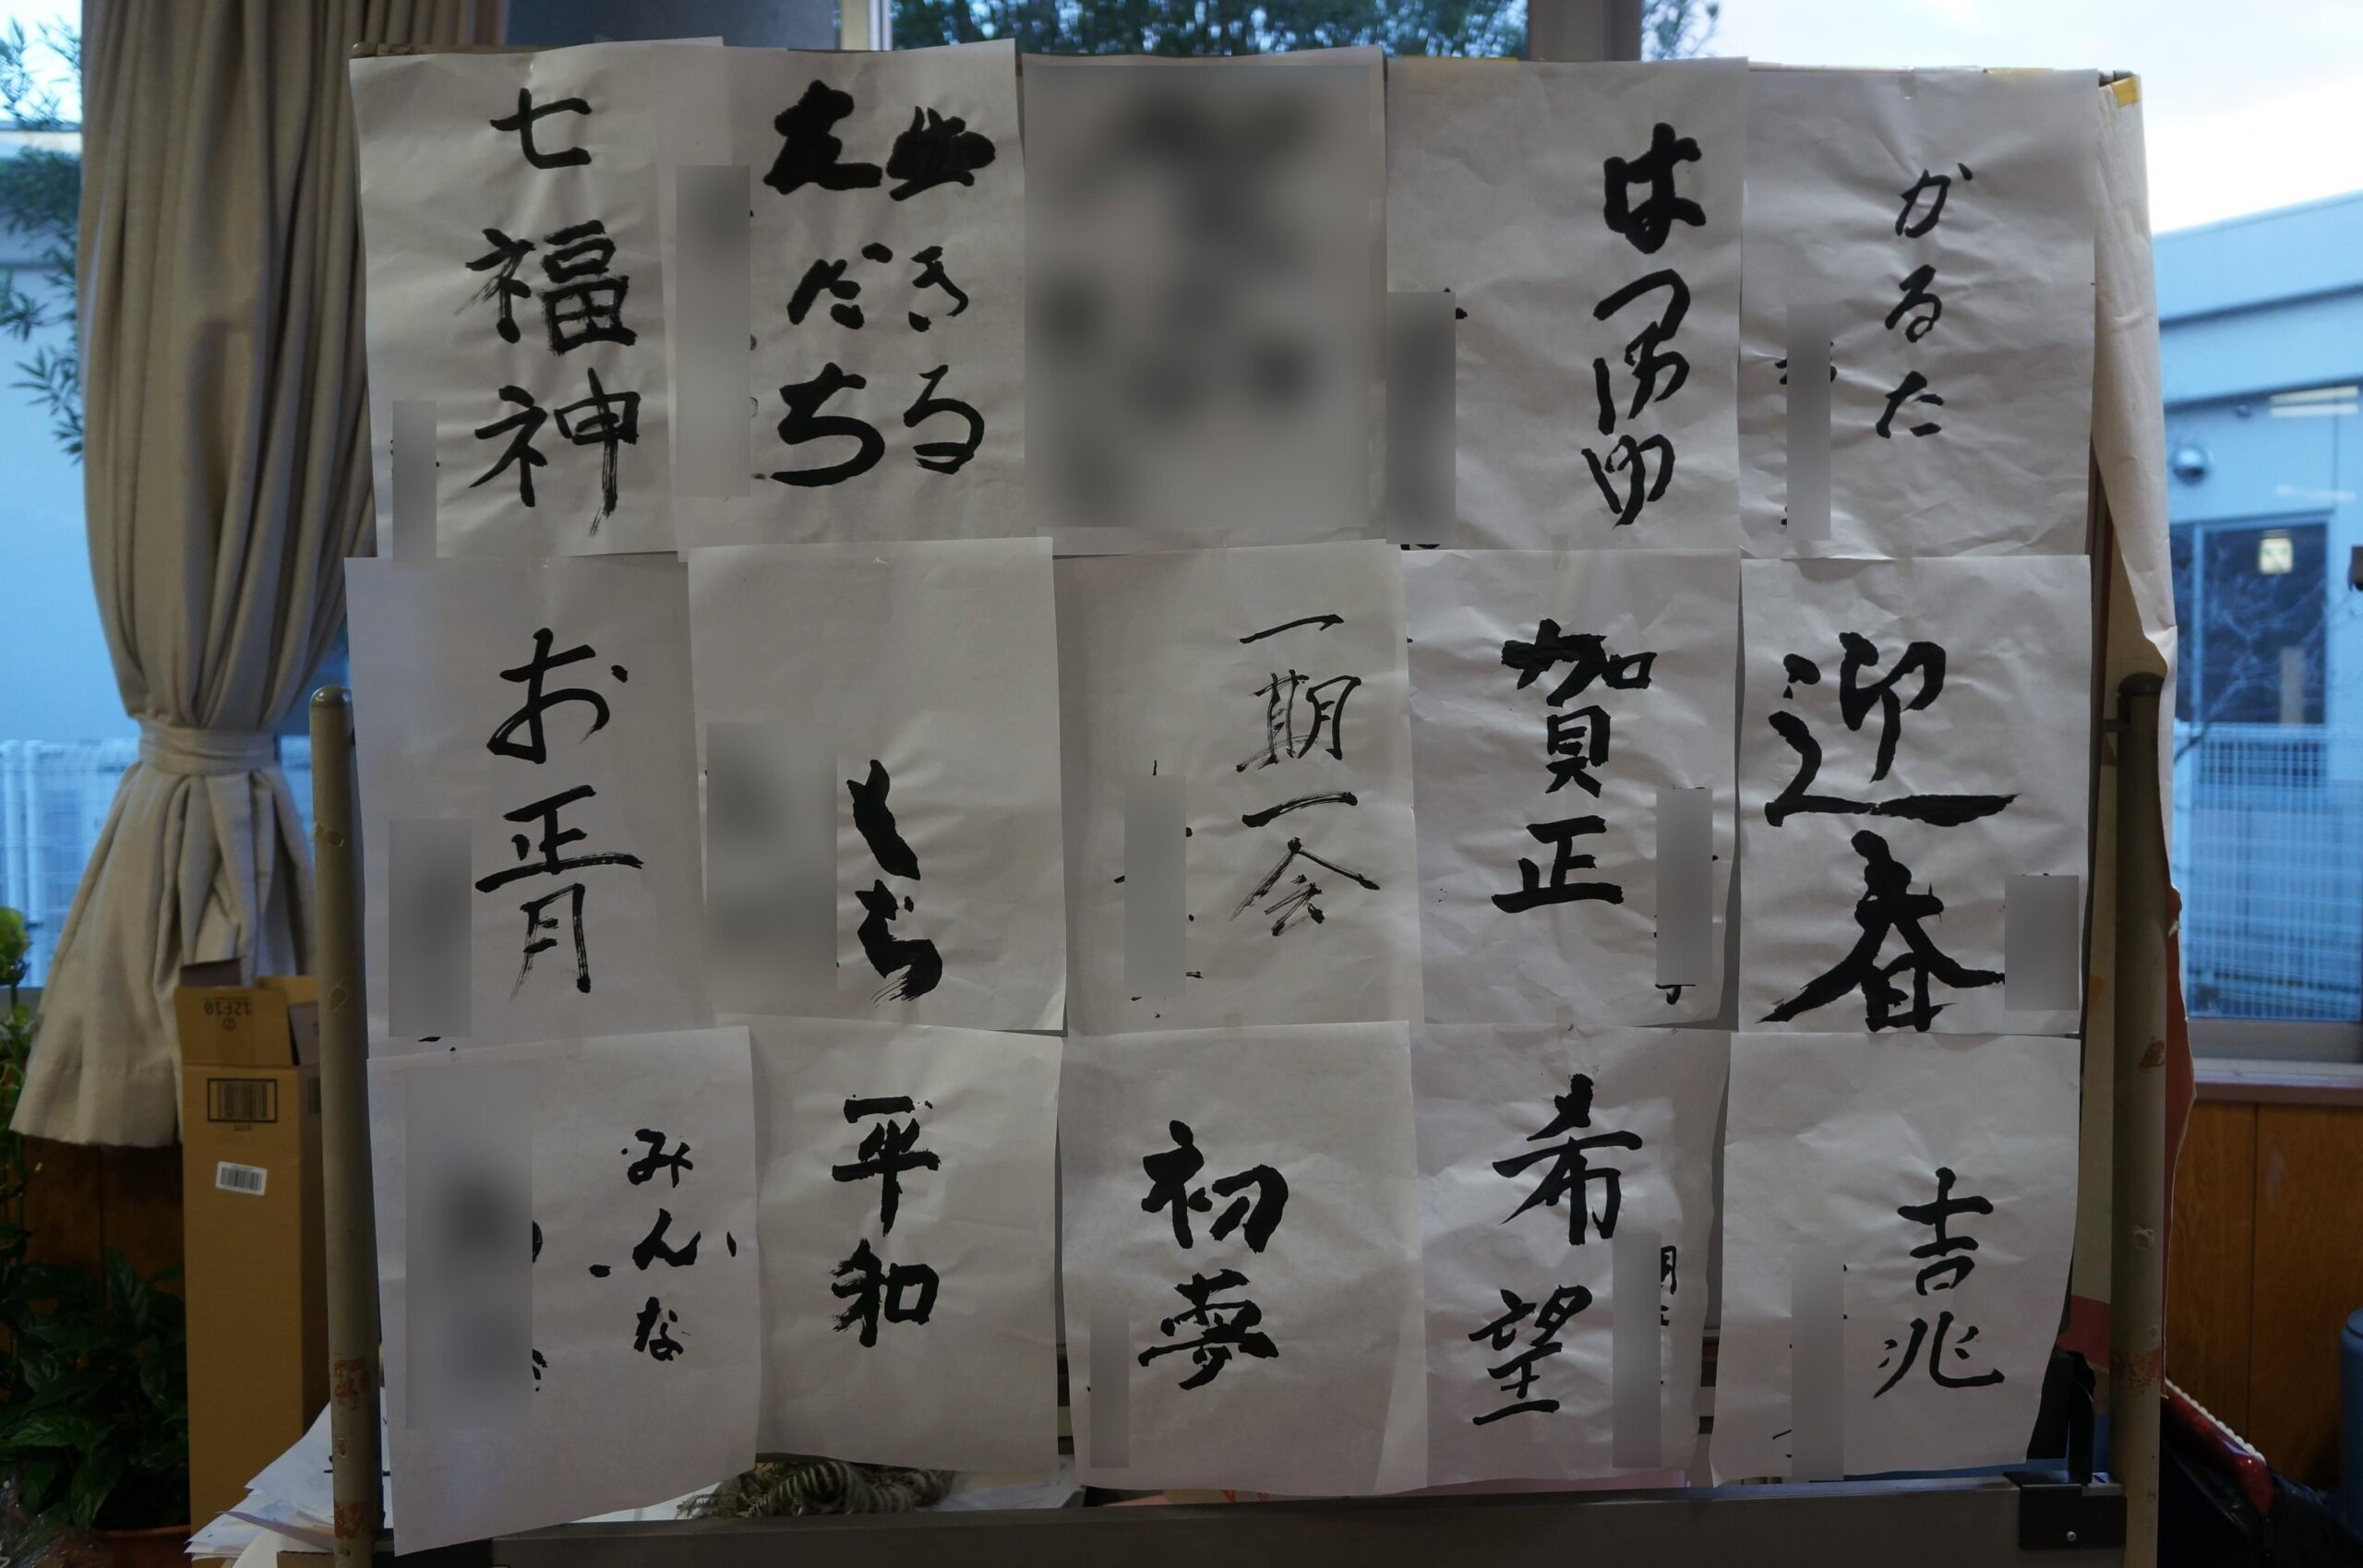 かるた
はつゆめ
生きる
友だち
七福神
迎春
賀正
一期一会
もち
お正月
吉兆
希望
初夢
平和
みんな
12F10